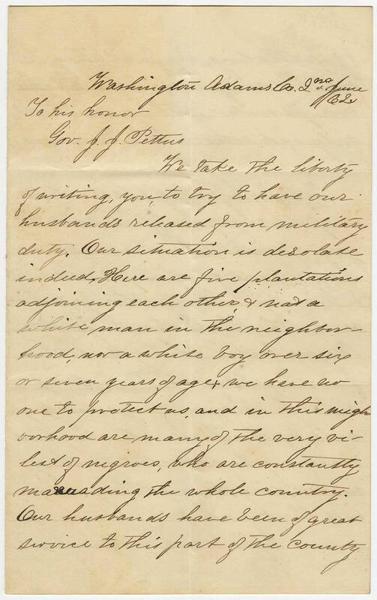 Washington Adams Co. 2nd June
/62
To his honor
Gov. J. J. Pettus
We take the liberty
of writing, you to try to have our
husbands released from military
duty. Our situation is desolate
indeed. Here are five plantations
adjoining each other & not a
white man in the neighbor-
hood, nor a white boy over six
or seven years of age, we have no
one to protect us, and in this neigh
borhood are many of the very vi-
lest of negroes, who are constantly
marauding the whole country.
Our husbands have been of great
service to this part of the county